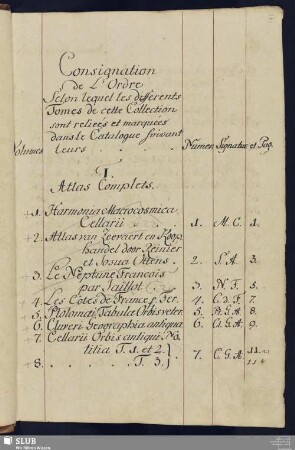 Consignation
de L'Ordre
Selon lequel les differents
Tomes de cette Collection
sont reliées et marquées
dans le Catalogue suivant
Volumes leurs . . . Numero Signatur et Pag.
I.
Atlas Complets.
+ 1. Harmonia Macrocosmica
Cellarii . . 1. M. C. 1.
+ 2. Atlas van Zeevaert en Koop
handel door Reinier
et Josua Ottens. 2. S. A. 3.
+ 3. Le Neptune Francais
par Jaillot . . 3. N. F. 5.
+ 4. Les Cotes de France p. Fer. 4. C. d. F. 7.
+ 5. Ptolomæi Tabulæ Orbis veter. 5. Pt. G. A. 8.
+ 6. Cluveri Geographia antiqua 6. Cl. G. A. 9.
+ 7. Cellarii Orbis antiqui No-
titia T. 1. et 2. } 7. C. G. A. 11.
+ 8. . . . . . T. 3. } 11
SLUB
Wir führen Wissen.